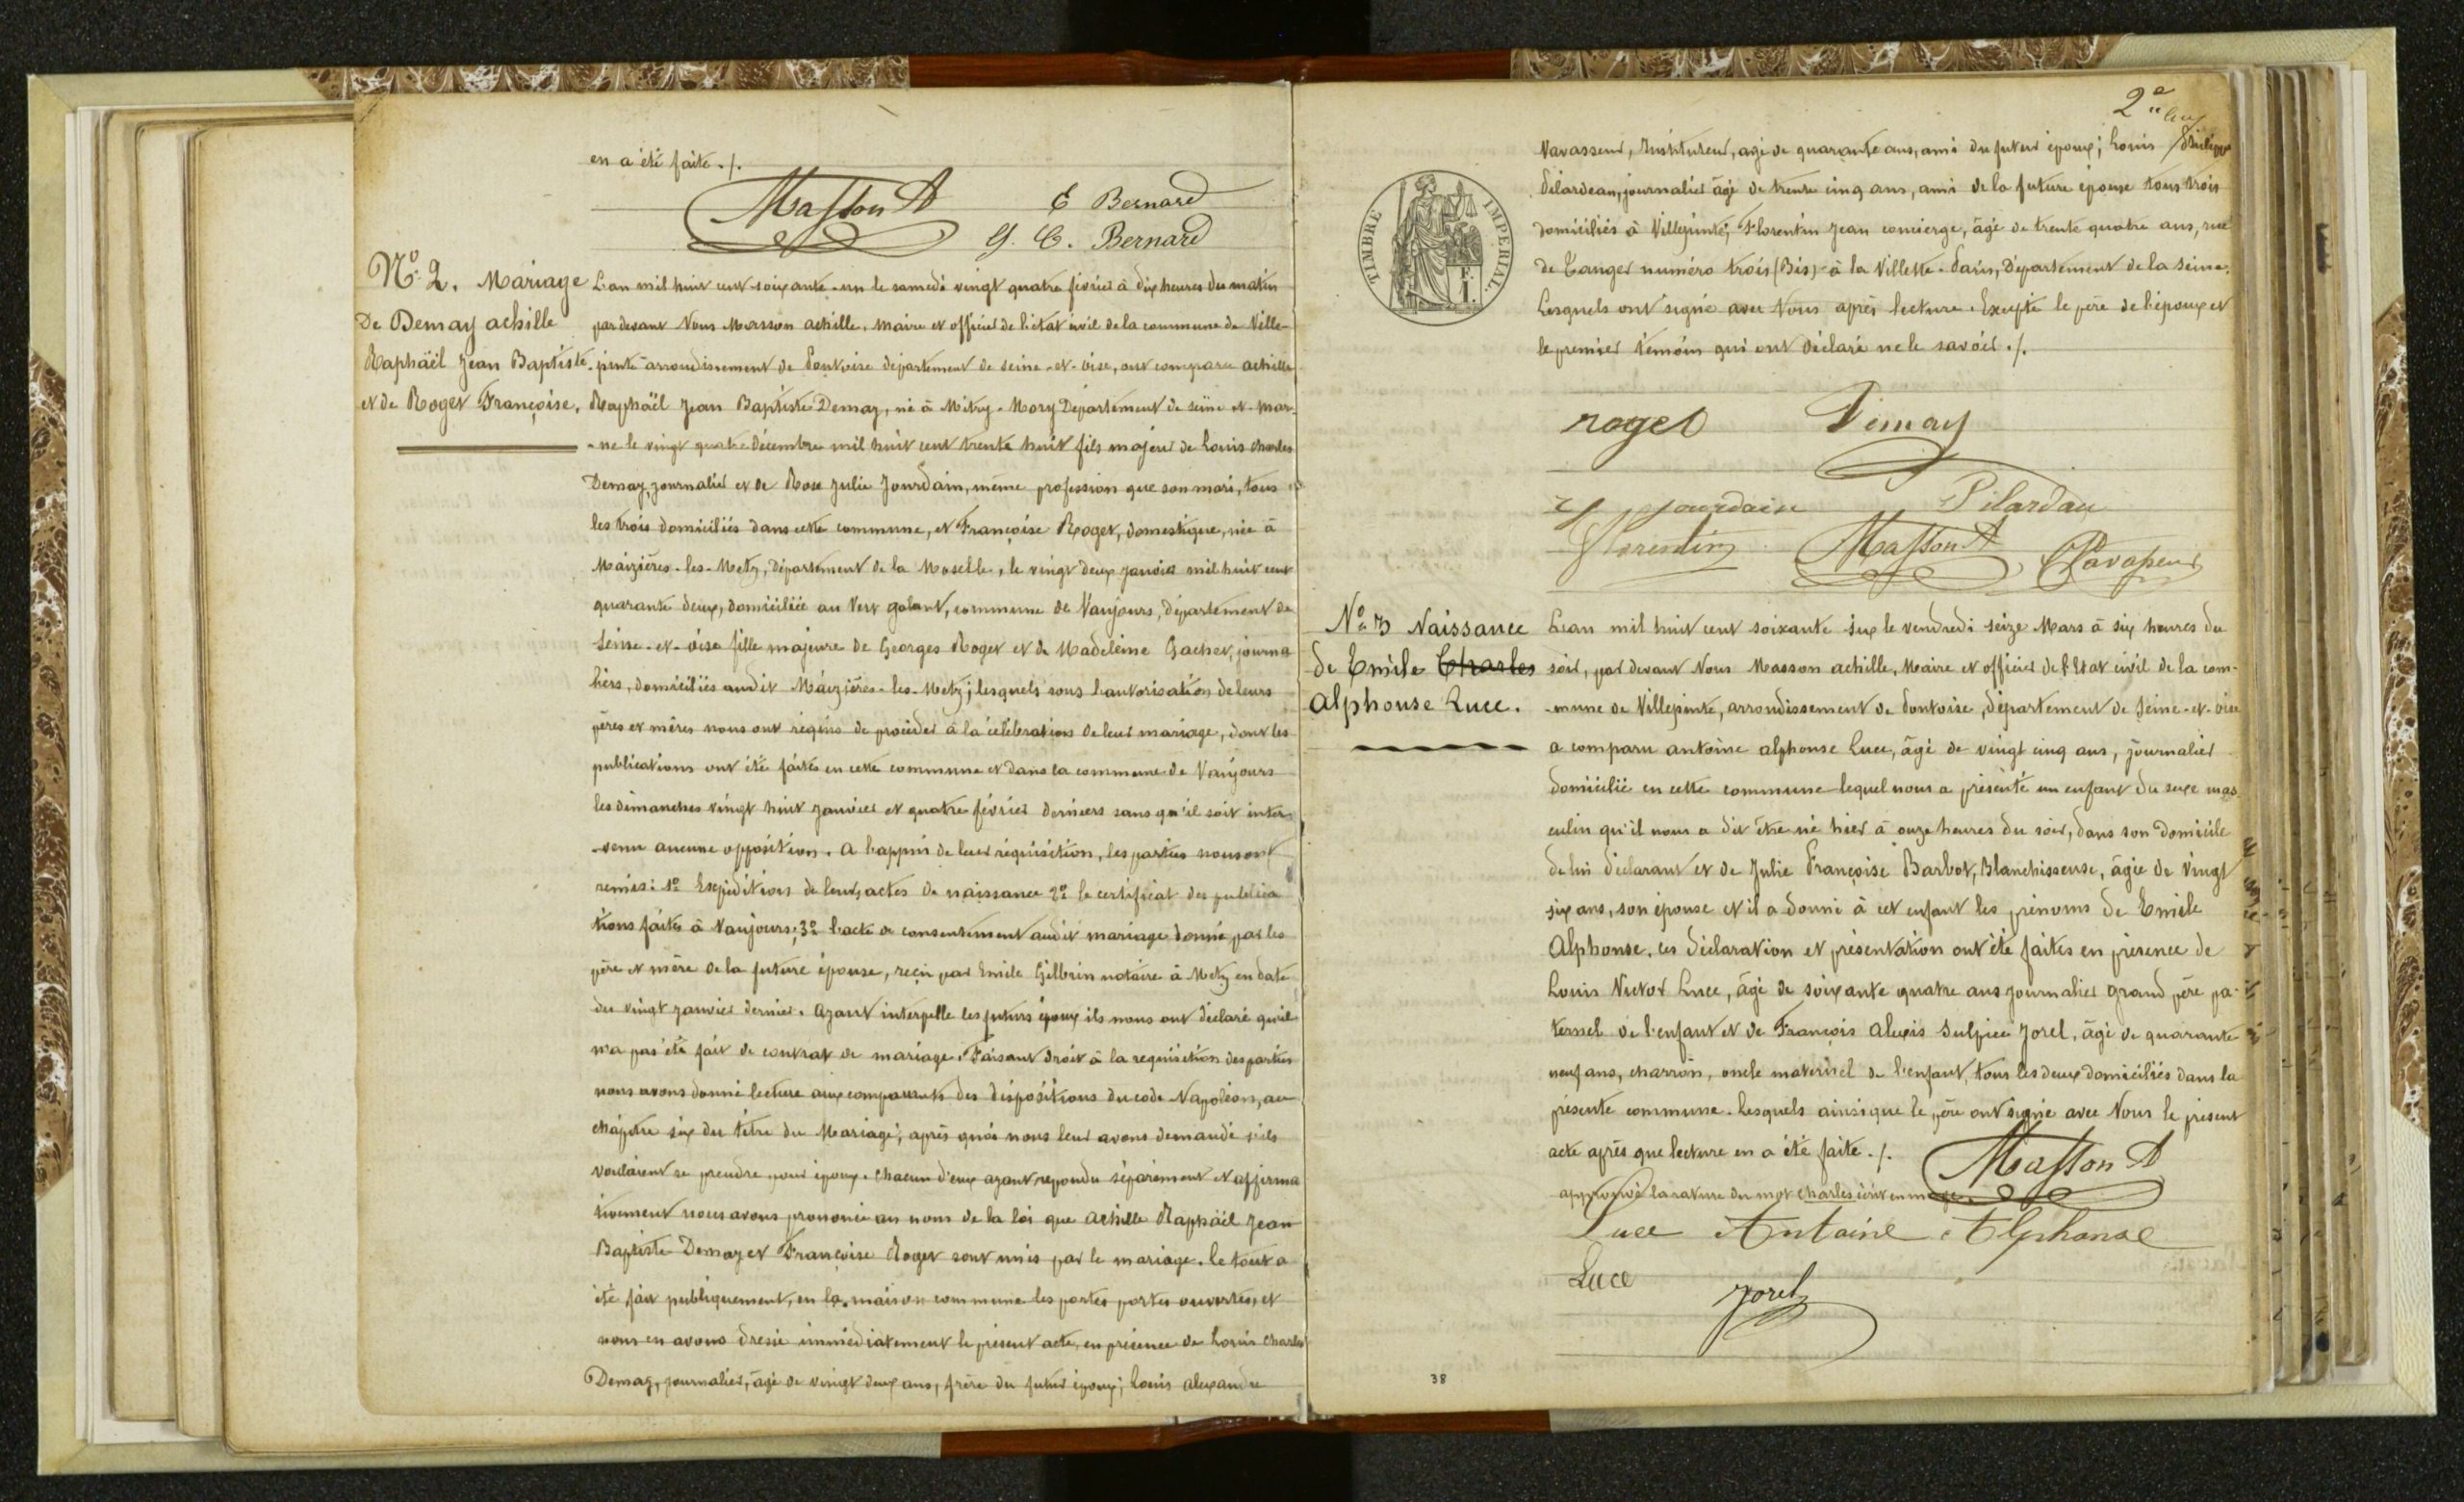 en a été faite ./.
Masson A
E Bernard
G. E. Bernard
N° 2. Mariage
De Demay achille
Raphaël Jean Baptiste
et de Roget Françoise.
L'an mil huit cent soixante-un le samedi vingt quatre février à dix heures du matin
par devant Nous Masson achille, Maire et officier de l'état civil de la commune de Ville-
pinte arrondissement de Pontoise département de seine-et-oise, ont comparu achille
Raphaël Jean Baptiste Demay, né à Mitry-Mory Département de seine et-mar-
-ne le vingt quatre décembre mil huit cent trente huit fils majeur de Louis charles
Demay, journalier et de Rose Julie Jourdain, même profession que son mari, tous
les trois domiciliés dans cette commune, et Françoise Roget, domestique, née à
Maizières-les-Metz, Département de la Moselle, le vingt deux janvier mil huit cent
quarante deux, domiciliée au Vert galant, commune de Vaujours, département de
Seine-et-oise fille majeure de Georges Roget et de Madeleine Gachet, journa
liers, domiciliés audit Maizières-les-Metz; lesquels sous l'autorisation de leurs
pères et mères nous ont requis de procéder à la célébration de leur mariage, dont les
publications ont été faites en cette commune et dans la commune de Vaujours
les dimanches vingt huit janvier et quatre février derniers sans qu'il soit inter-
-venu aucune opposition. A l'appui de leur réquisition, les parties nous ont
remis: 1° Expéditions de leurs actes de naissance 2° le certificat des publica
tions faites à Vaujours; 3° l'acte de consentement audit mariage donné par les
père et mère de la future épouse, reçu par Emile Gilbrin notaire à Metz en date
du vingt janvier dernier. Ayant interpellé les futurs époux ils nous ont déclaré qu'il
n'a pas été fait de contrat de mariage. Faisant droit à la requisition des parties
nous avons donné lecture aux comparants des dispositions du code Napoléon, au
chapitre six du titre du Mariage, après quoi nous leur avons demandé s'ils
voulaient se prendre pour époux. chacun d'eux ayant repondu séparément et affirma
tivement nous avons prononcé au nom de la loi que achille Raphaël Jean
Baptiste Demay et Françoise Roget sont unis par le mariage. le tout a
été fait publiquement, en la maison commune les portes portes ouvertes, et
nous en avons dressé immédiatement le présent acte, en présence de Louis charles
Demay, journalier, âgé de vingt deux ans, frère du futur époux; Louis alexandre
2e
Vavasseur, Instituteur, agé de quarante ans, ami du futur époux; Louis Philippe
Pilardeau, journalier âgé de trente cinq ans, ami de la future épouse tous trois
domiciliés à Villepinte; Florentin Jean concierge, âgé de trente quatre ans, rue
de Tanger numéro trois (Bis) à la Villette-Paris, Département de la Seine.
Lesquels ont signé avec Nous après lecture. Excepté le père de l'époux et
le premier témoin qui ont déclaré ne le savoir ./.
TIMBRE IMPERIAL.
roget
Demay
jourdain
Pilardau
Florentin
Masson A
Vavasseur
N° 3 Naissance
de Emile Charles
Alphonse Luce.
L'an mil huit cent soixante six le vendredi seize Mars à six heures du
soir, par devant Nous Masson achille, Maire et officier de l'Etat civil de la com-
-mune de Villepinte, arrondissement de Pontoise, département de Seine-et-oise
a comparu antoine alphonse Luce, âgé de vingt cinq ans, journalier
domicilié en cette commune lequel nous a présenté un enfant du sexe mas-
culin qu'il nous a dit être né hier à onze heures du soir, dans son Domicile
de lui déclarant et de Julie Françoise Barbot, Blanchisseuse, âgée de vingt
six ans, son épouse et il a donné à cet enfant les prénoms de Emile
Alphonse. ces déclaration et présentation ont été faites en présence de
Louis Victor Luce, âgé de soixante quatre ans journalier grand père pa-
ternel de l'enfant et de François Alexis Sulpice Jorel, âgé de quarante
neuf ans, charron, oncle maternel de l'enfant, tous les deux domiciliés dans la
présente commune. Lesquels ainsi que le père ont signé avec Nous le présent
acte après que lecture en a été faite ./.
Masson A
approuvé la rature du mot charles écrit en marge.
Luce Antoine Alphonse
Luce
Jorel
38